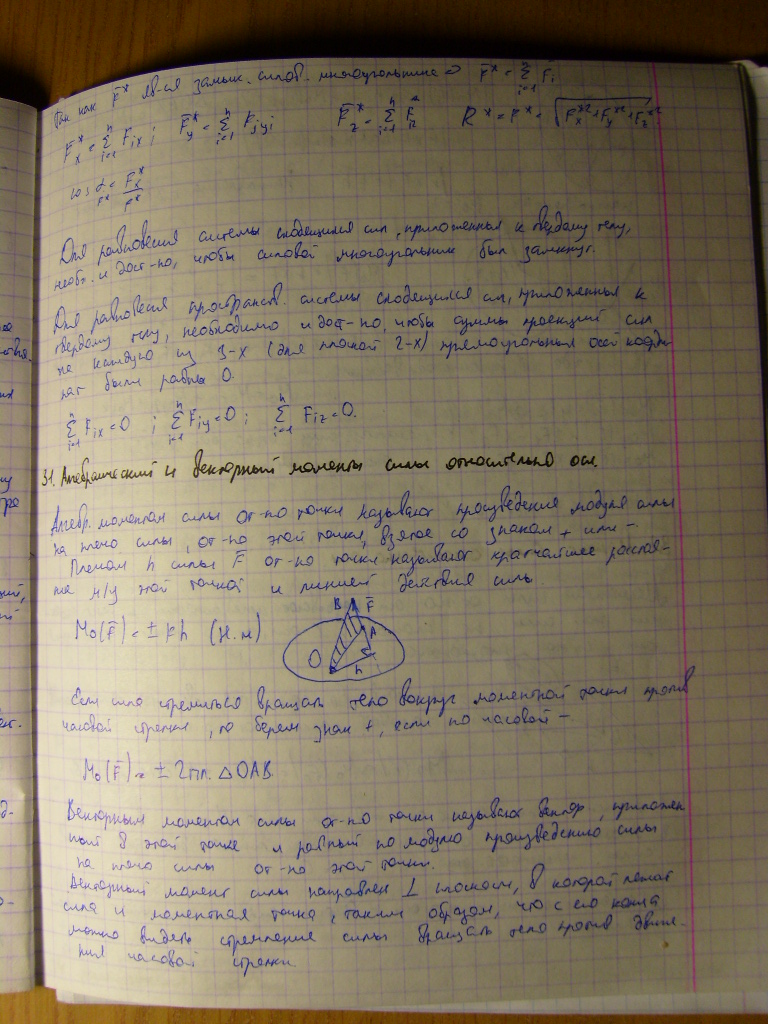 Так как F̄* яв-ся замык. силов. многоугольника => F̄* = Σ F̄i
i=1 n
F*x = Σ Fix ; F̄*y = Σ Fiyi F̄*z = Σ F R* = F* = √F*x² + F*y² + F*z²
cos α = F*x / F*
Для равновесия системы сходящихся сил, приложенных к твердому телу,
необх. и дост-но, чтобы силовой многоугольник был замкнут.
Для равновесия пространств. системы сходящихся сил, приложенных к
твердому телу, необходимо и дост-но, чтобы суммы проекций сил
на каждую из 3-х (для плоской 2-х) прямоугольных осей коорди
нат были равны 0.
Σ Fix = 0 ; Σ Fiy = 0 ; Σ Fiz = 0.
31. Алгебраический и векторный моменты силы относительно оси.
Алгебр. моментом силы от-но точки называют произведение модуля силы
на плечо силы, от-но этой точки, взятое со знаком + или –
Плечом h силы F̄ от-но точки называют кратчайшее расстоя-
ние м/у этой точкой и линией действия силы
B F̄
Mo(F̄) = ± Fh (Н.м) A
O h
Если сила стремиться вращать тело вокруг моментной точки против
часовой стрелки, то берем знак +, если по часовой –
Mo(F̄) = ± 2пл. △OAB.
Векторным моментом силы от-но точки называют вектор, приложен
ный в этой точке и равный по модулю произведению силы
на плечо силы от-но этой точки.
Векторный момент силы направлен ⊥ плоскости, в которой лежат
сила и моментная точка, таким образом, что с его конца
можно видеть стремление силы вращать тело против движе-
ния часовой стрелки.